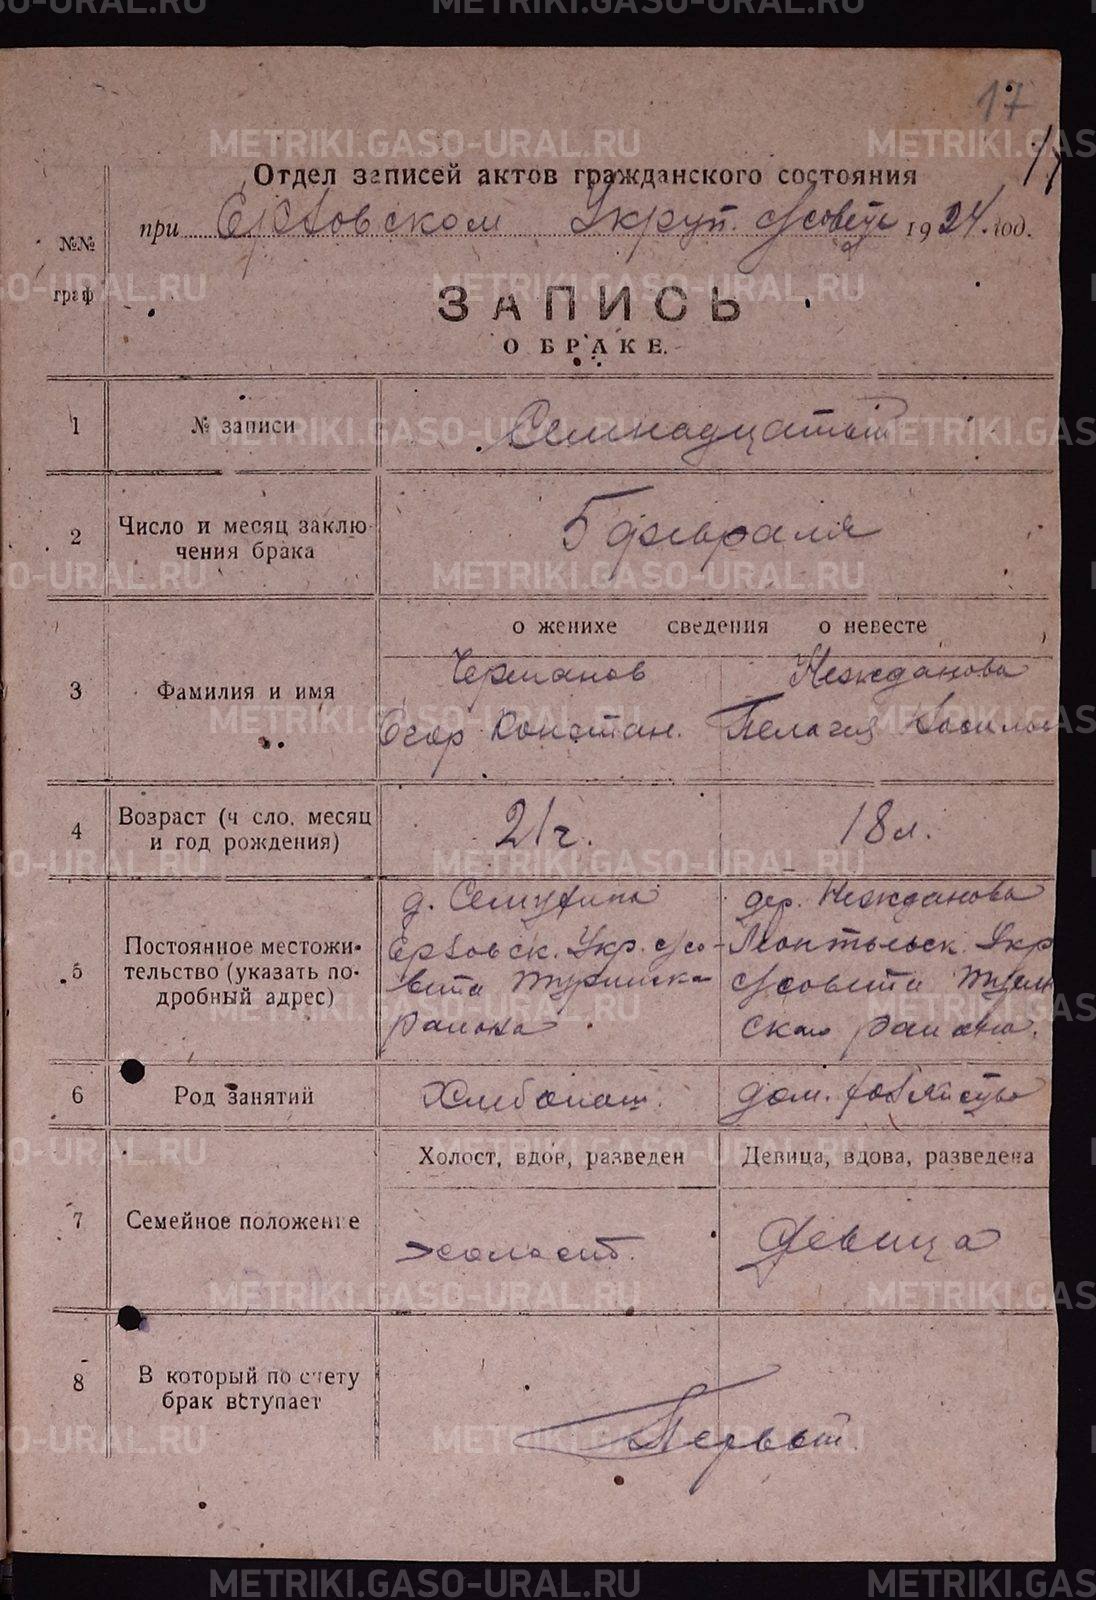 METRIKI.GASO-URAL.RU
17
17
Отдел записей актов гражданского состояния
при Ерзовском Укруп. с/совете 1924 год.
№№
граф
ЗАПИСЬ
О БРАКЕ.
1 № записи Семнадцатый
2 Число и месяц заклю-
чения брака 5 февраля
о женихе сведения о невесте
3 Фамилия и имя
Черманов Нежданова
Егор Констан. Пелагия
4 Возраст (ч сло, месяц
и год рождения) 21 г. 18 л.
5 Постоянное местожи-
тельство (указать по-
дробный адрес)
д. Семухина дер. Нежданова
Ерзовск. Укр. с/со- Леонтьевск. Укр
вета Туринска с/совета
района ского района.
6 Род занятий Хлебопаш. дом.
Холост, вдов, разведен Девица, вдова, разведена
7 Семейное положение холост. девица
8 В который по счету
брак вступает Первый